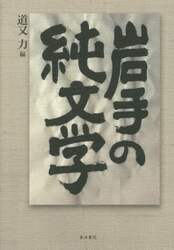 岩手の
純文学
道又 力 編